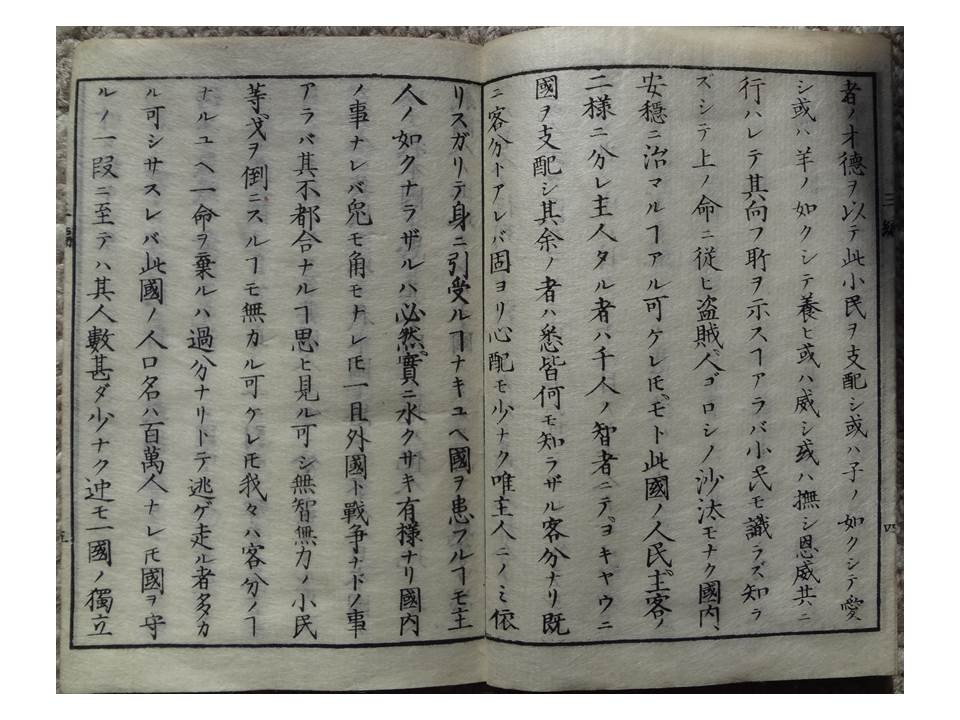 三編
四
者ノ才德ヲ以テ此小民ヲ支配シ或ハ子ノ如クシテ愛
シ或ハ羊ノ如クシテ養ヒ或ハ威シ或ハ撫シ恩威共ニ
行ハレテ其向フ所ヲ示スヿアラバ小民モ識ラズ知ラ
ズシテ上ノ命ニ從ヒ盗賊、人ゴロシノ沙汰モナク國内、
安穩ニ治マルヿアル可ケレ𪜈、モト此國ノ人民、主客ノ
二様ニ分レ主人タル者ハ千人ノ智者ニテ、ヨキヤウニ
國ヲ支配シ其余ノ者ハ悉皆何モ知ラザル客分ナリ既
ニ客分トアレバ固ヨリ心配モ少ナク唯主人ニノミ依
リスガリテ身ニ引受ルヿナキユヘ國ヲ患フルヿモ主
人ノ如クナラザルハ必然、實ニ水クサキ有様ナリ國内
ノ事ナレバ兎モ角モナレ𪜈一旦外國ト戰争ナドノ事
アラバ其不都合ナルヿ思ヒ見ル可シ無智無力ノ小民
等、戈ヲ倒ニスルヿモ無カル可ケレ𪜈我々ハ客分ノヿ
ナルユヘ一命ヲ棄ルハ過分ナリトテ逃ゲ走ル者多カ
ル可シサスレバ此國ノ人口名ハ百萬人ナレ𪜈國ヲ守
ルノ一段ニ至テハ其人數甚ダ少ナク迚モ一國ノ獨立